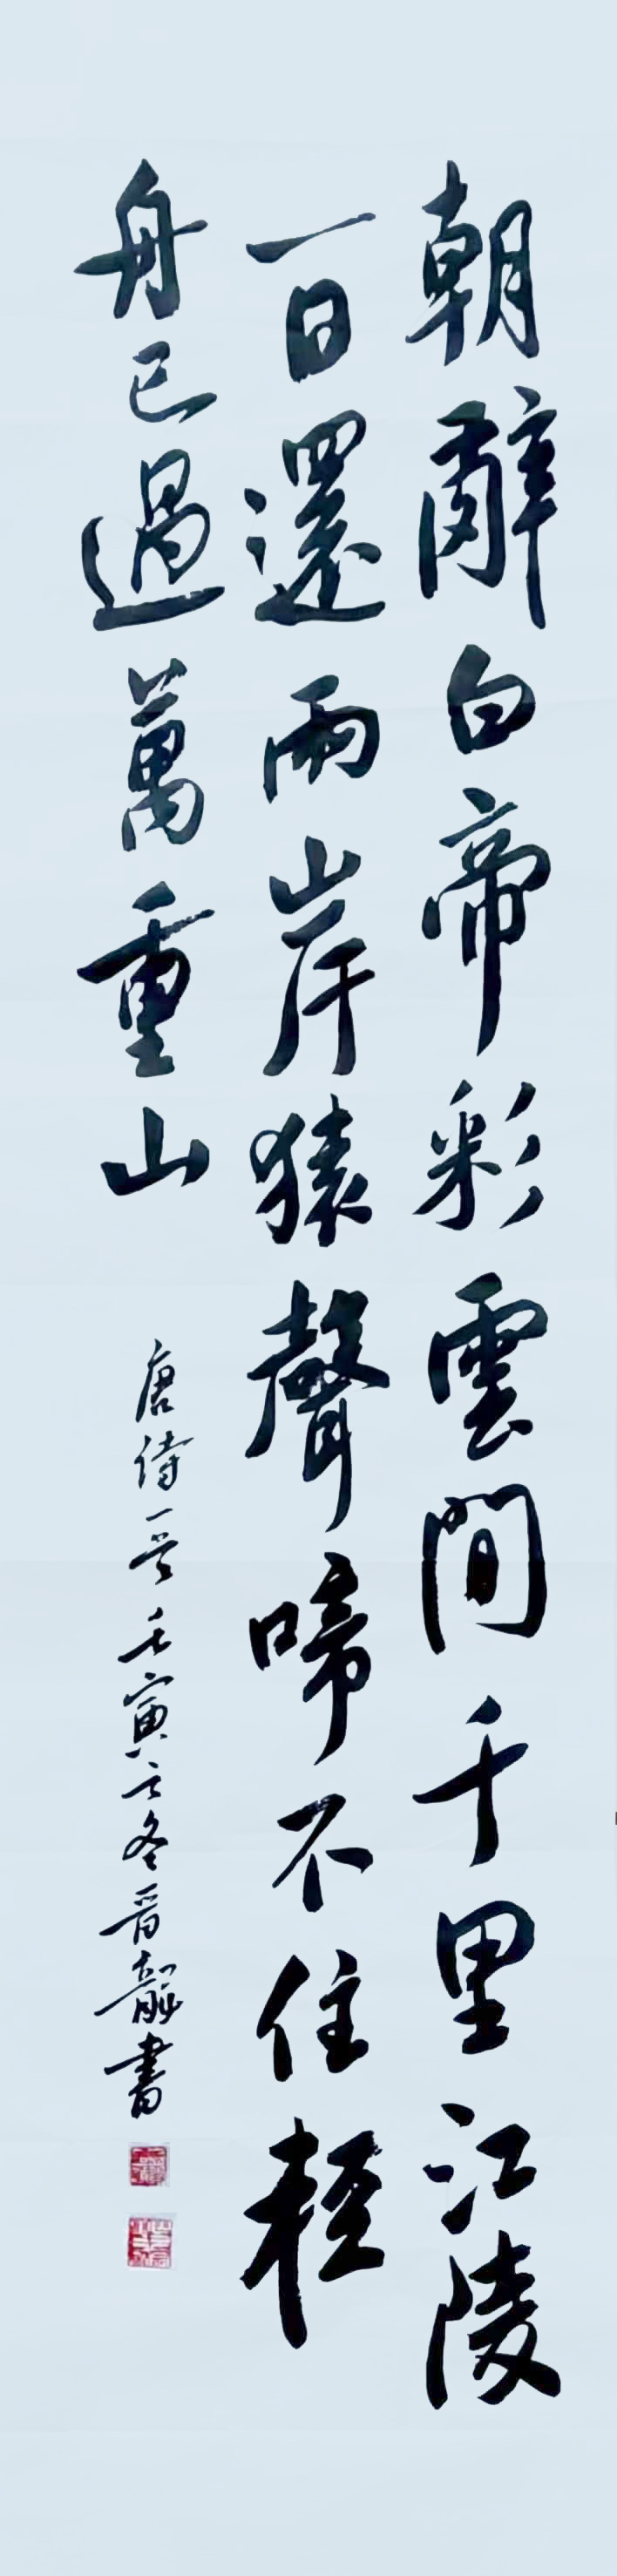 朝辭白帝彩雲間千里江陵
一日還兩岸猿聲啼不住輕
舟已過萬重山
唐詩一首壬寅之冬晋龍書